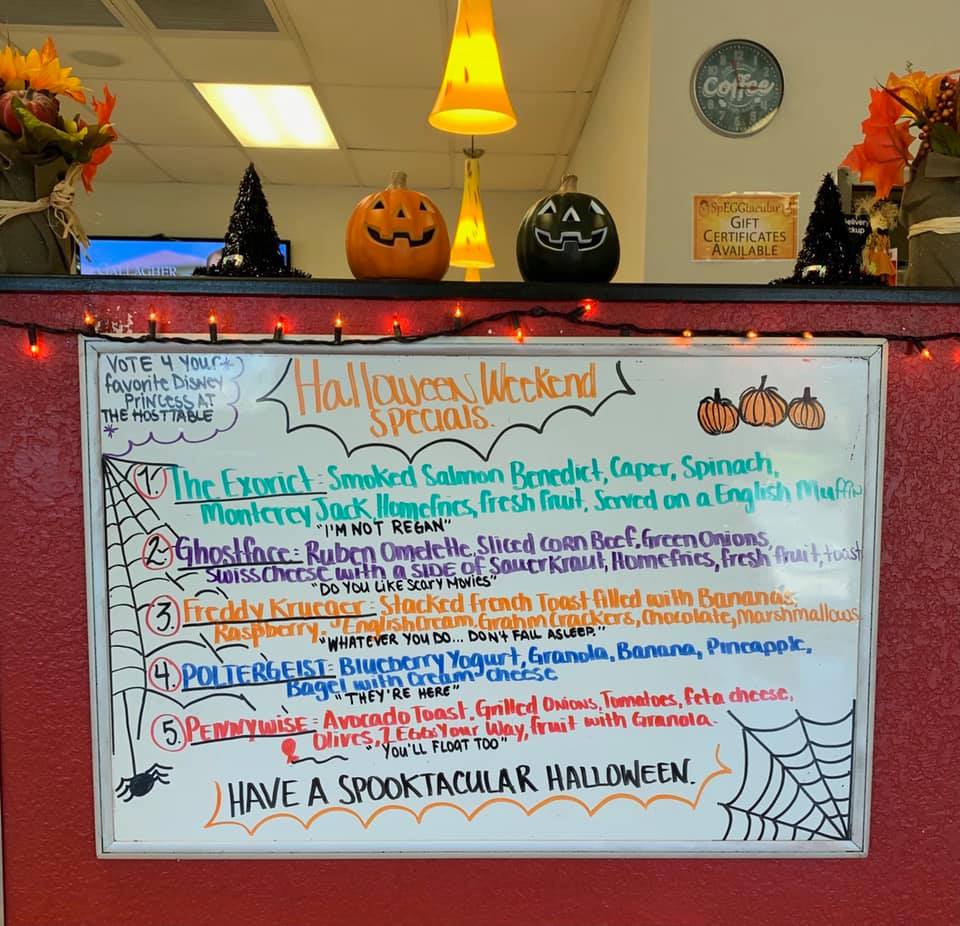 Coffee
SpEGGtacular
GIFT
CERTIFICATES
AVAILABLE
Delivery
ckup
GALLAGHER
VOTE 4 your
favorite Disney
Princess AT
THE HOST TABLE
Halloween Weekend
SPECIALS.
1. The Exorict: Smoked Salmon Benedict, Caper, Spinach,
Monterey Jack, Homefries, fresh fruit, Served on a English Muffin
"I'M NOT REGAN"
2. Ghostface: Ruben Omelette, Sliced corn Beef, Green Onions,
Swiss cheese with a SIDE OF Sauerkraut, Homefries, fresh fruit, toast
"DO YOU LIKE Scary Movies"
3. Freddy Krueger: Stacked french Toast filled with Bananas,
Raspberry, English Cream, Grahm Crackers, Chocolate, Marshmallows
"WHATEVER YOU DO... DON'T FALL ASLEEP."
4. POLTERGEIST: Blueberry Yogurt, Granola, Banana, Pineapple,
Bagel with Cream-cheese
"THEY'RE HERE"
5. PENNYWISE: Avocado Toast, Grilled Onions, Tomatoes, feta cheese,
Olives, 2 EGGS Your Way, fruit with Granola.
"YOU'LL FLOAT TOO"
HAVE A SPOOKTACULAR HALLOWEEN.